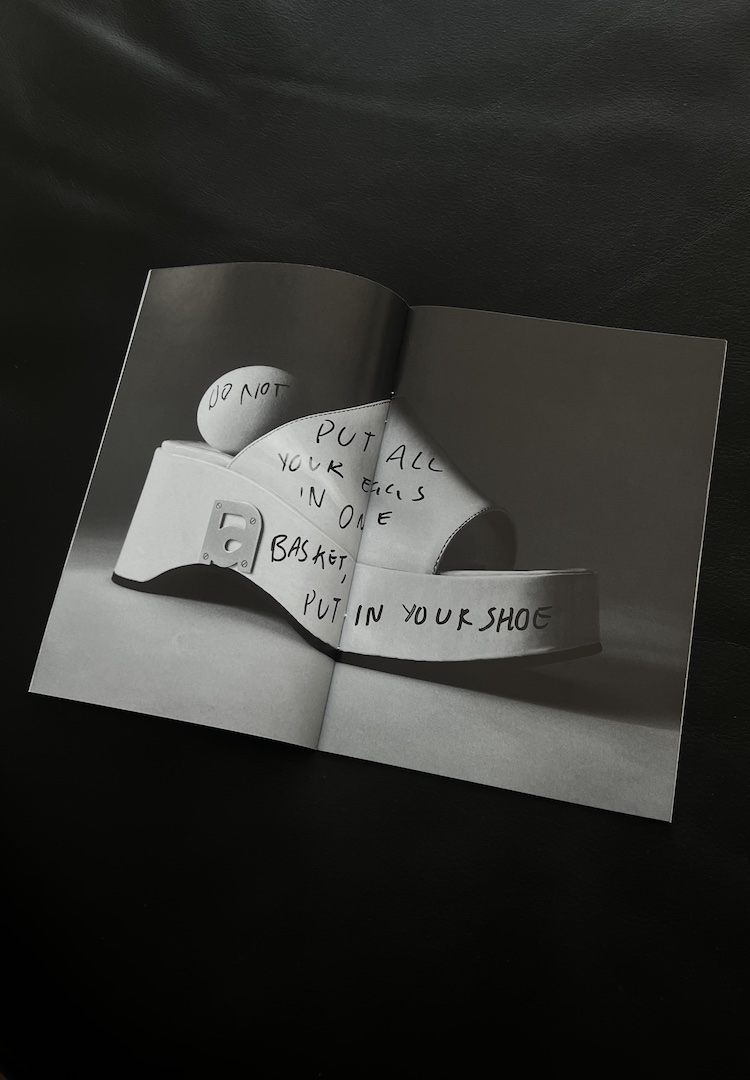 DO NOT
PUT ALL
YOUR EGGS
IN ONE
BASKET,
PUT IN YOUR SHOE